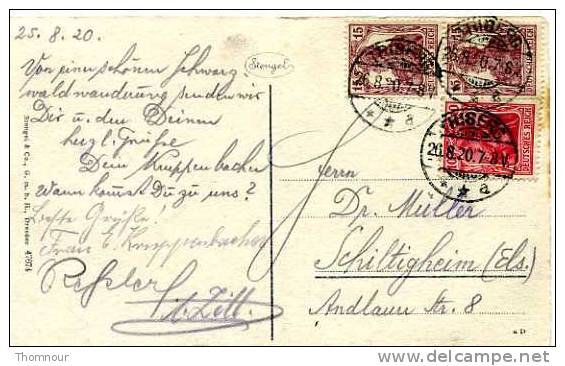 25.8.20.
Von einer schönen Schwarz-
waldwanderung senden wir
Dir u. den Deinen
herzl. Grüße
Dein Kruppenbacher
Wann kommst Du zu uns?
Beste Grüße!
Frau E. Kruppenbacher
Stengel
Stengel & Co., G. m. b. H., Dresden
15
15
DEUTSCHES REICH
DEUTSCHES REICH
DEUTSCHES REICH
26.8.20.7-8V.
* * a
Herrn
Dr. Müller
Schiltigheim (Els.)
Andlauer Str. 8
Thomnour
delcampe.net